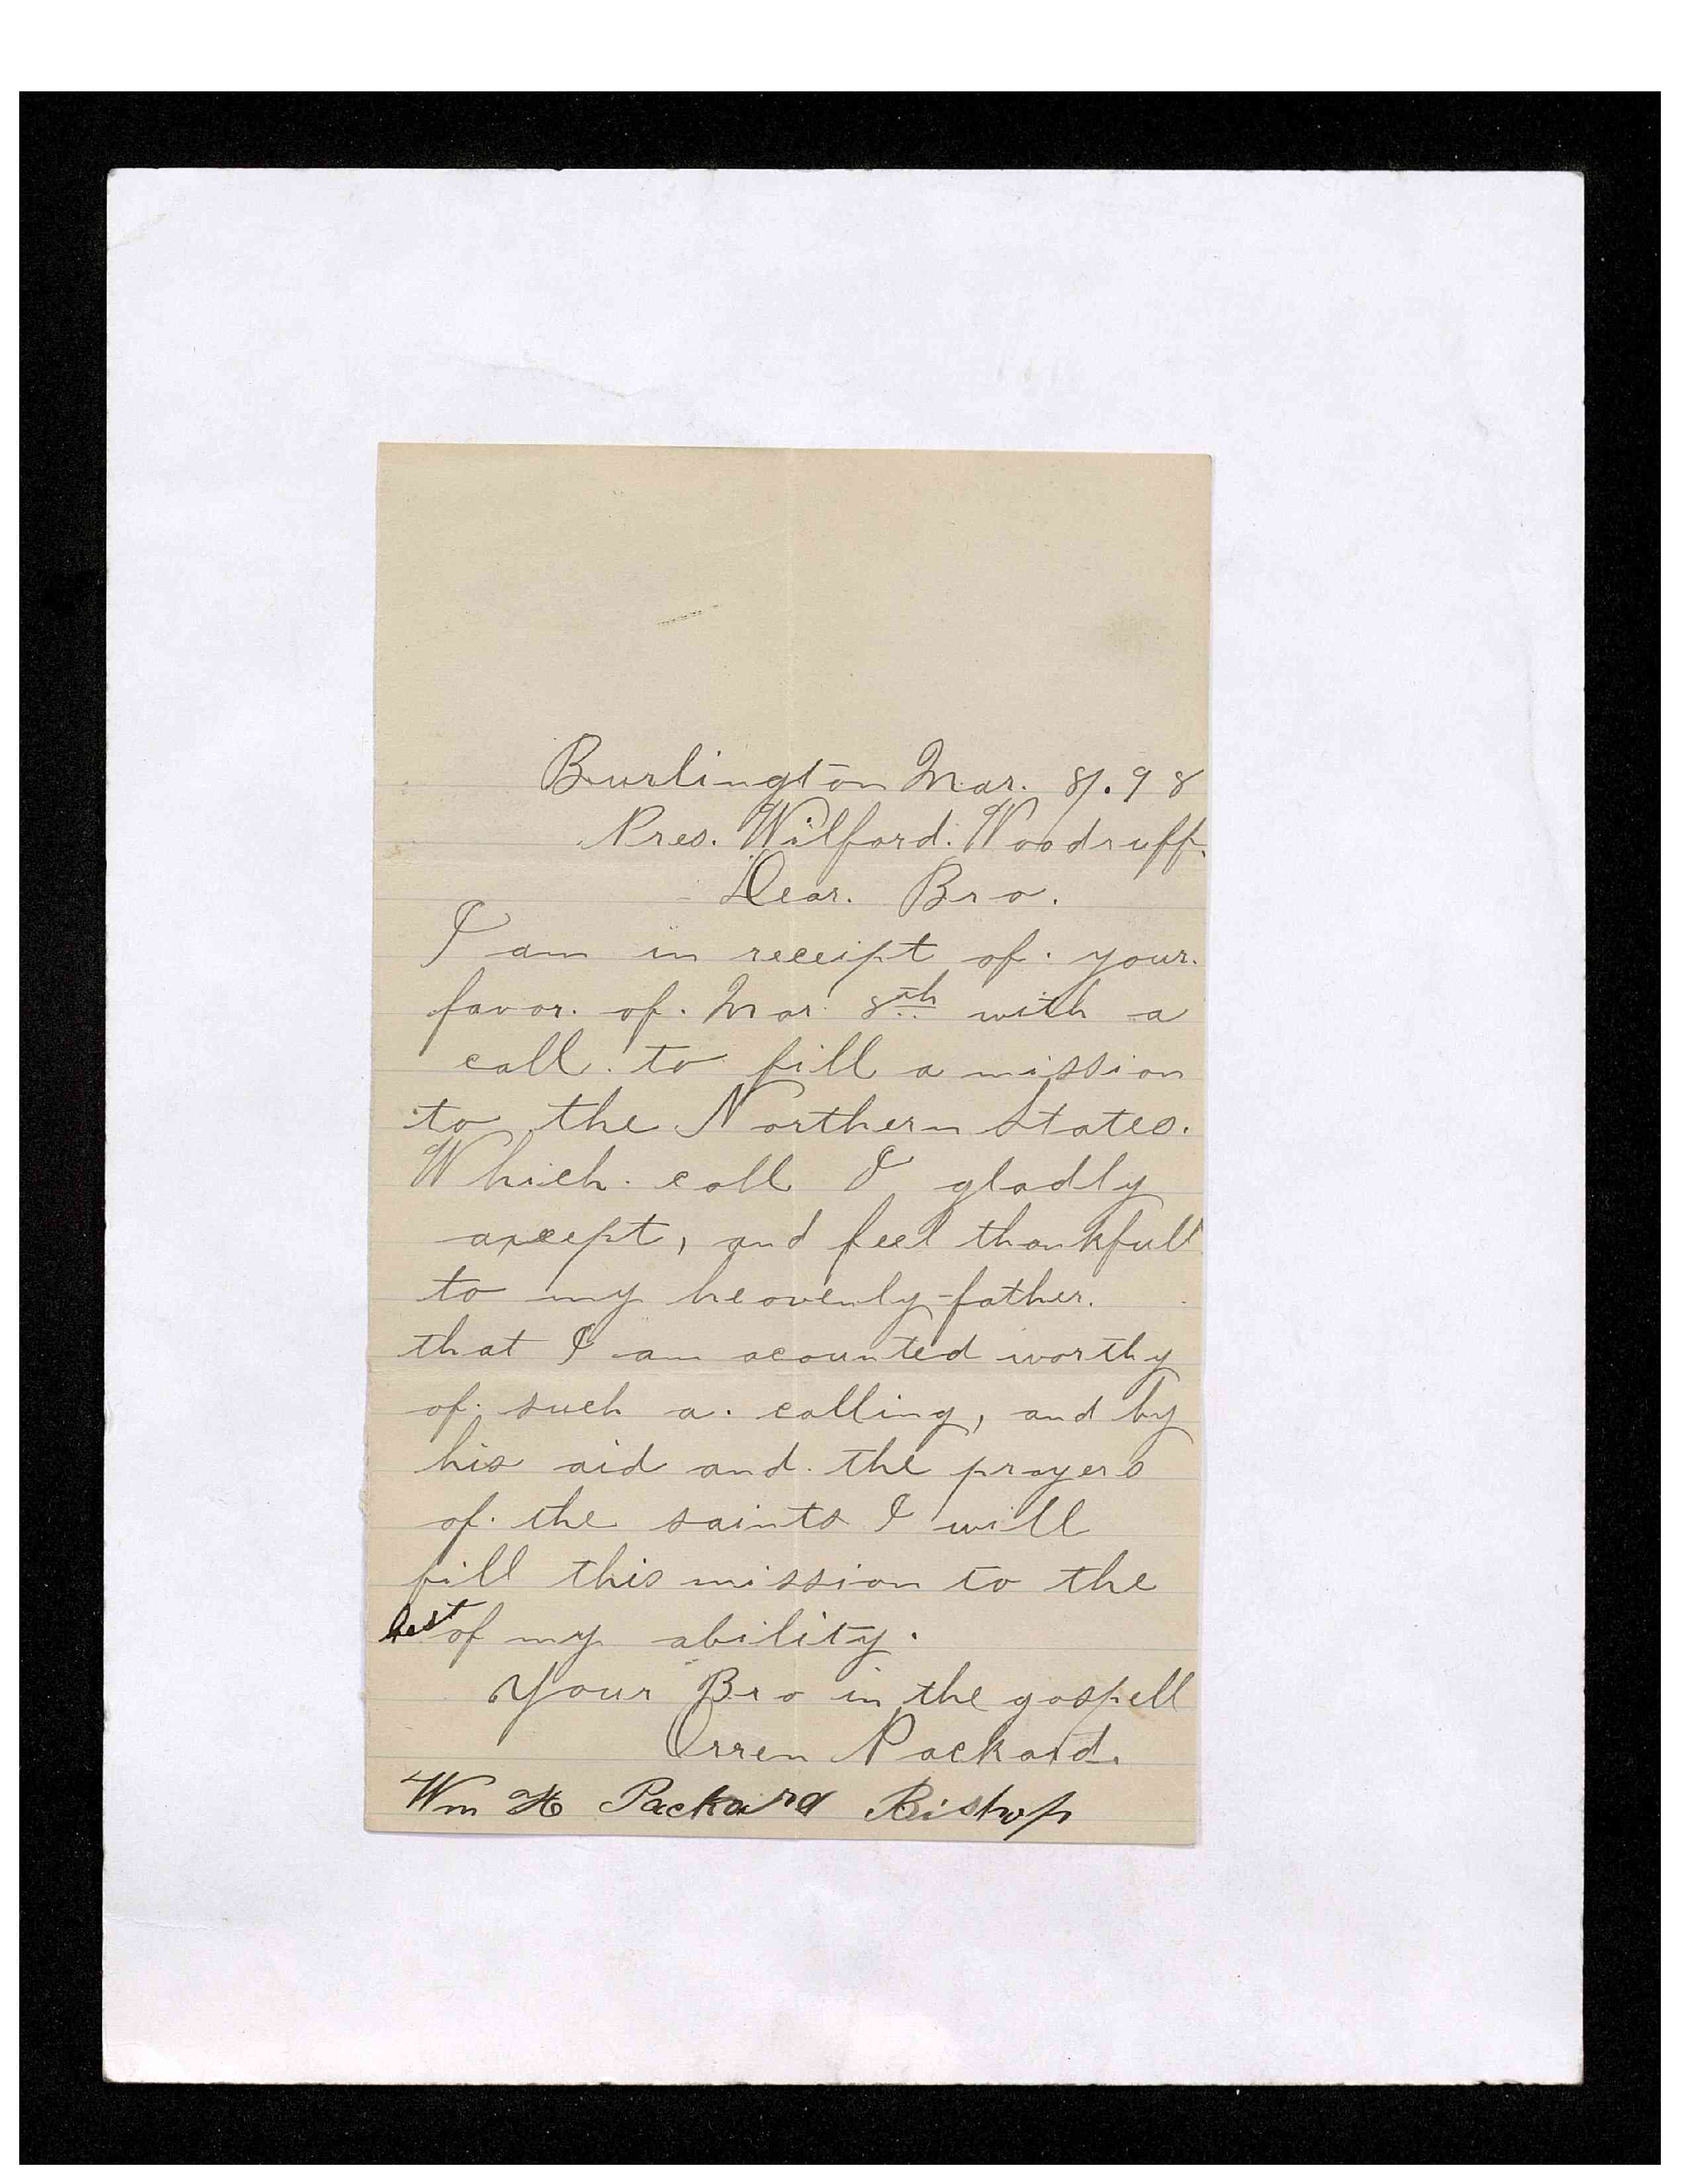 Burlington Mar. 8/. 98
Pres. Wilford. Woodruff.
Dear. Bro.
I am in receipt of. your.
favor. of. Mar. 8th with a
call. to fill a mission
to the Northern States.
Which. call I gladly
axcept, and feel thankfull
to my heavenly-father.
that I am acounted worthy
of. such a. calling, and by
his aid and. the prayers
of. the saints I will
fill this mission to the
best of my ability.
Your Bro in the gospell
Orren Packard.
Wm H Packard Bishop